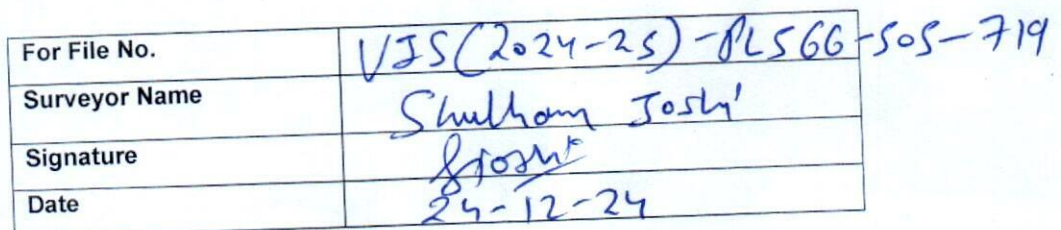 For File No. VIS(2024-25)-PL566-505-719
Surveyor Name Shubham Joshi
Signature SJoshi
Date 24-12-24